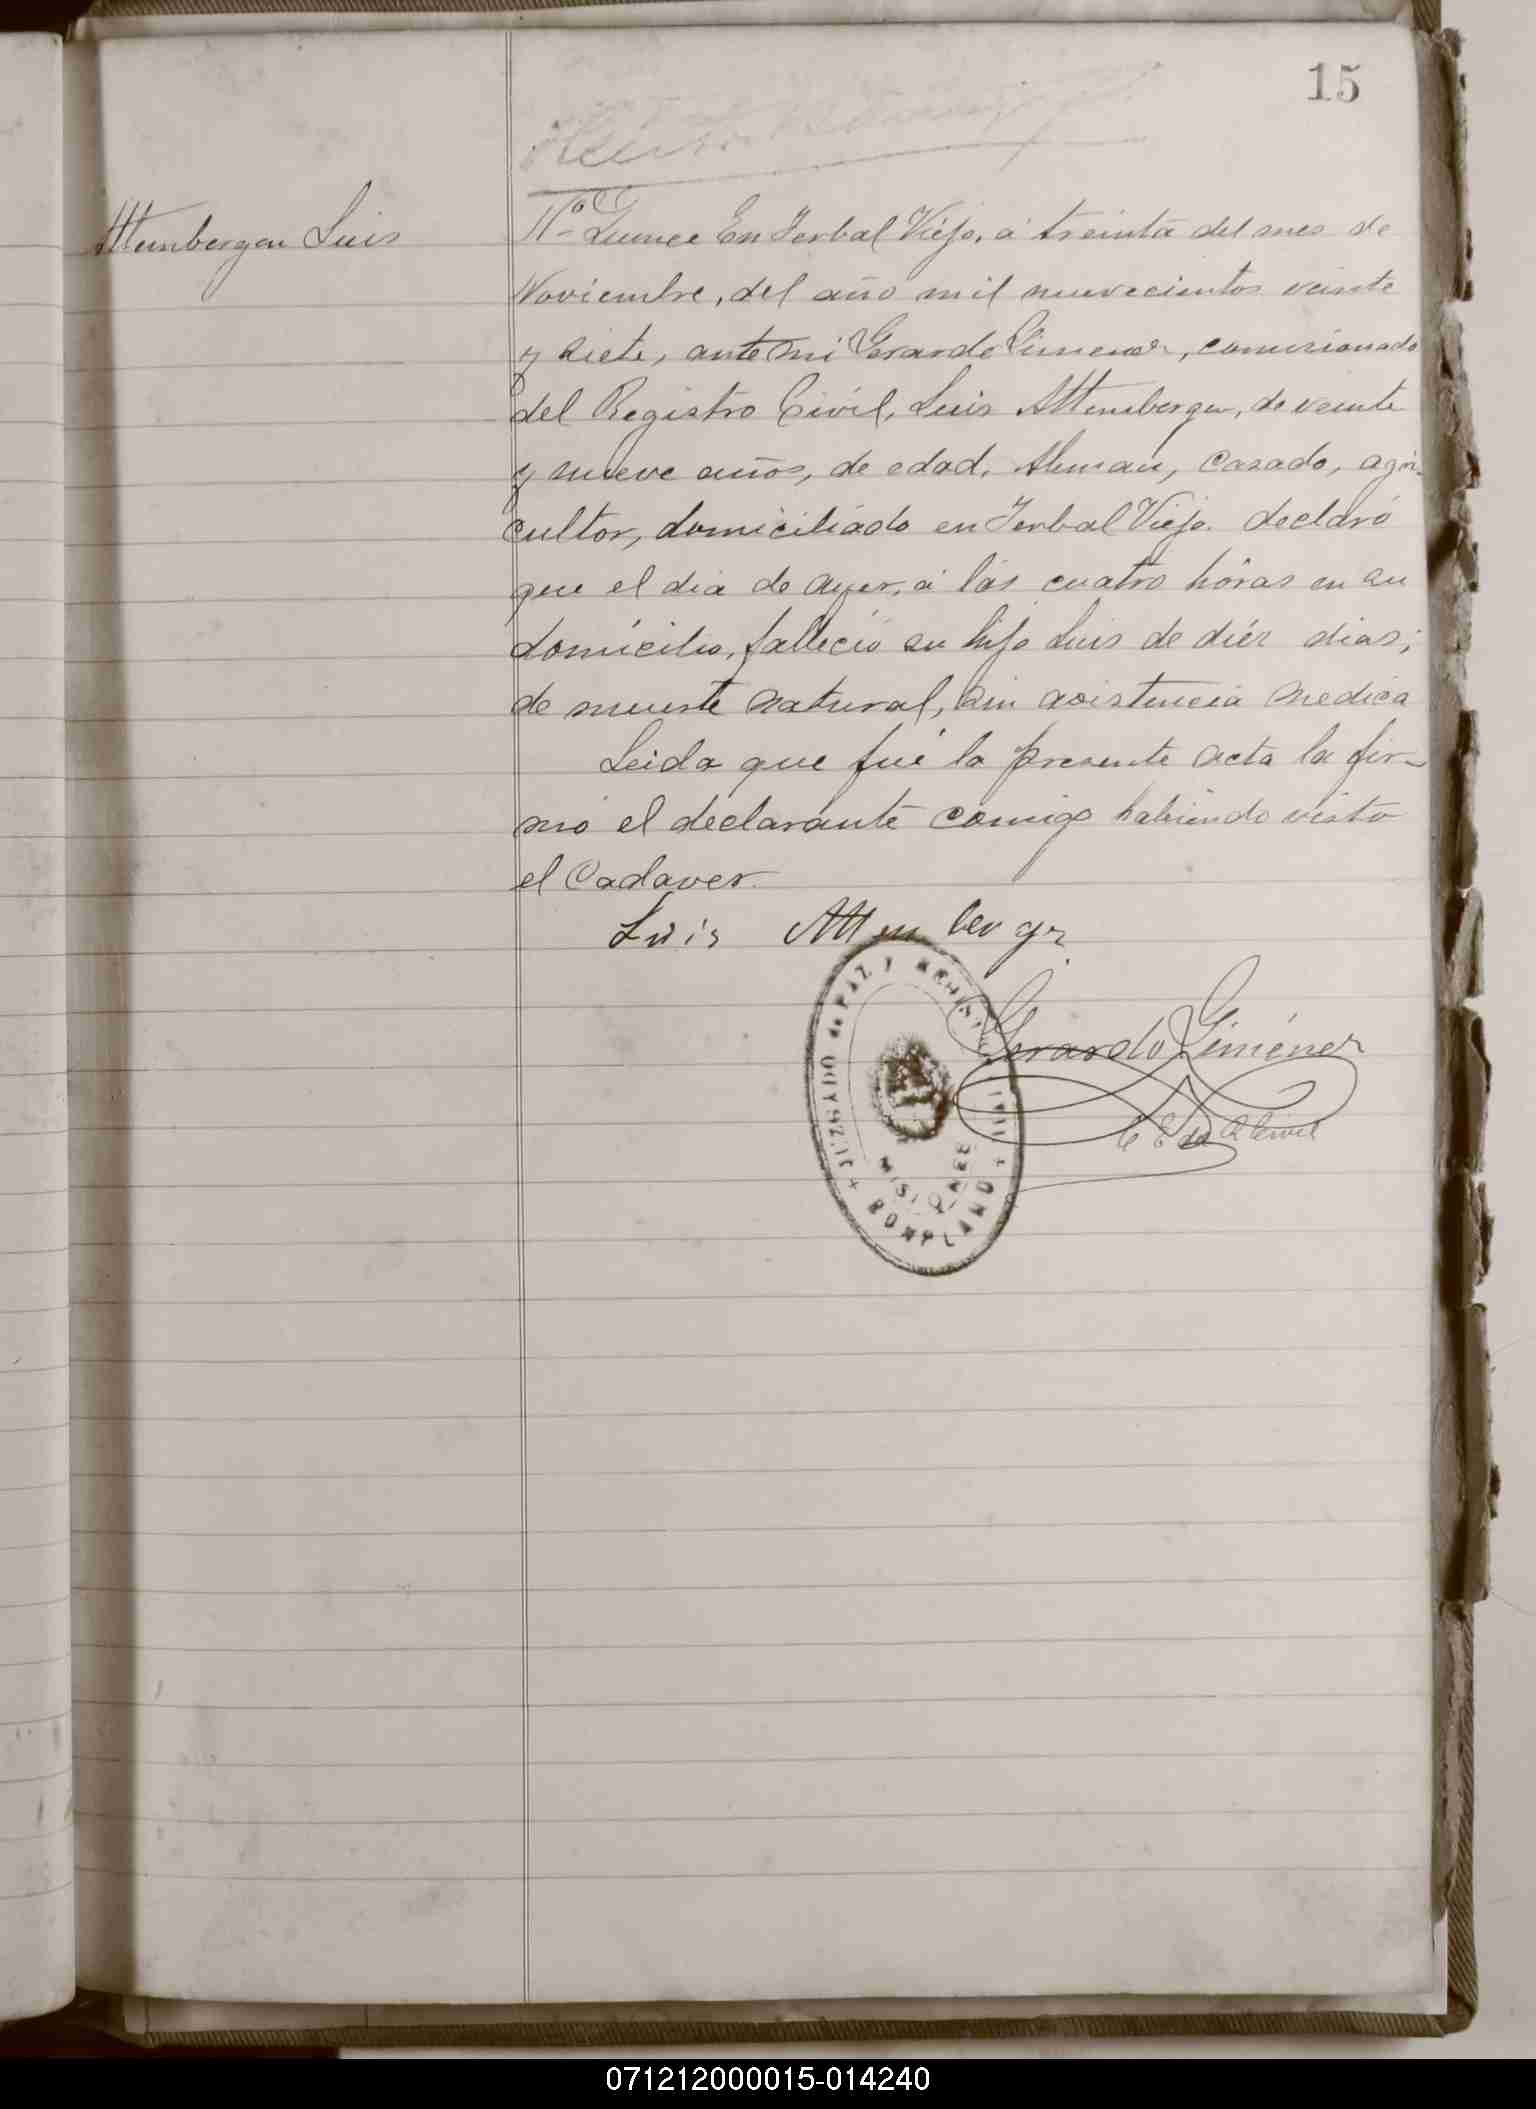 15
Attembergen Luis
Nº Quince En Yerbal Viejo, á treinta del mes de
Noviembre, del año mil nuevecientos veinte
y siete, ante mi Gerardo Gimenez, comisionado
del Registro Civil, Luis Attemberger, de veinte
y nueve años, de edad, Aleman, casado, agri-
cultor, domiciliado en Yerbal Viejo. declaró
que el dia de ayer, á las cuatro hóras en su
domicilio, falleció su hijo Luis de diéz dias;
de muerte natural, sin asistencia medica
Leida que fué la presente acta la fir-
mó el declarante comigo habiendo visto
el Cadaver.
Luis Attemberger
Gerardo Giménez
E. del R. Civil
JUZGADO de PAZ Y REGISTRO CIVIL
MISIONES
+ BONPLAND +
071212000015-014240